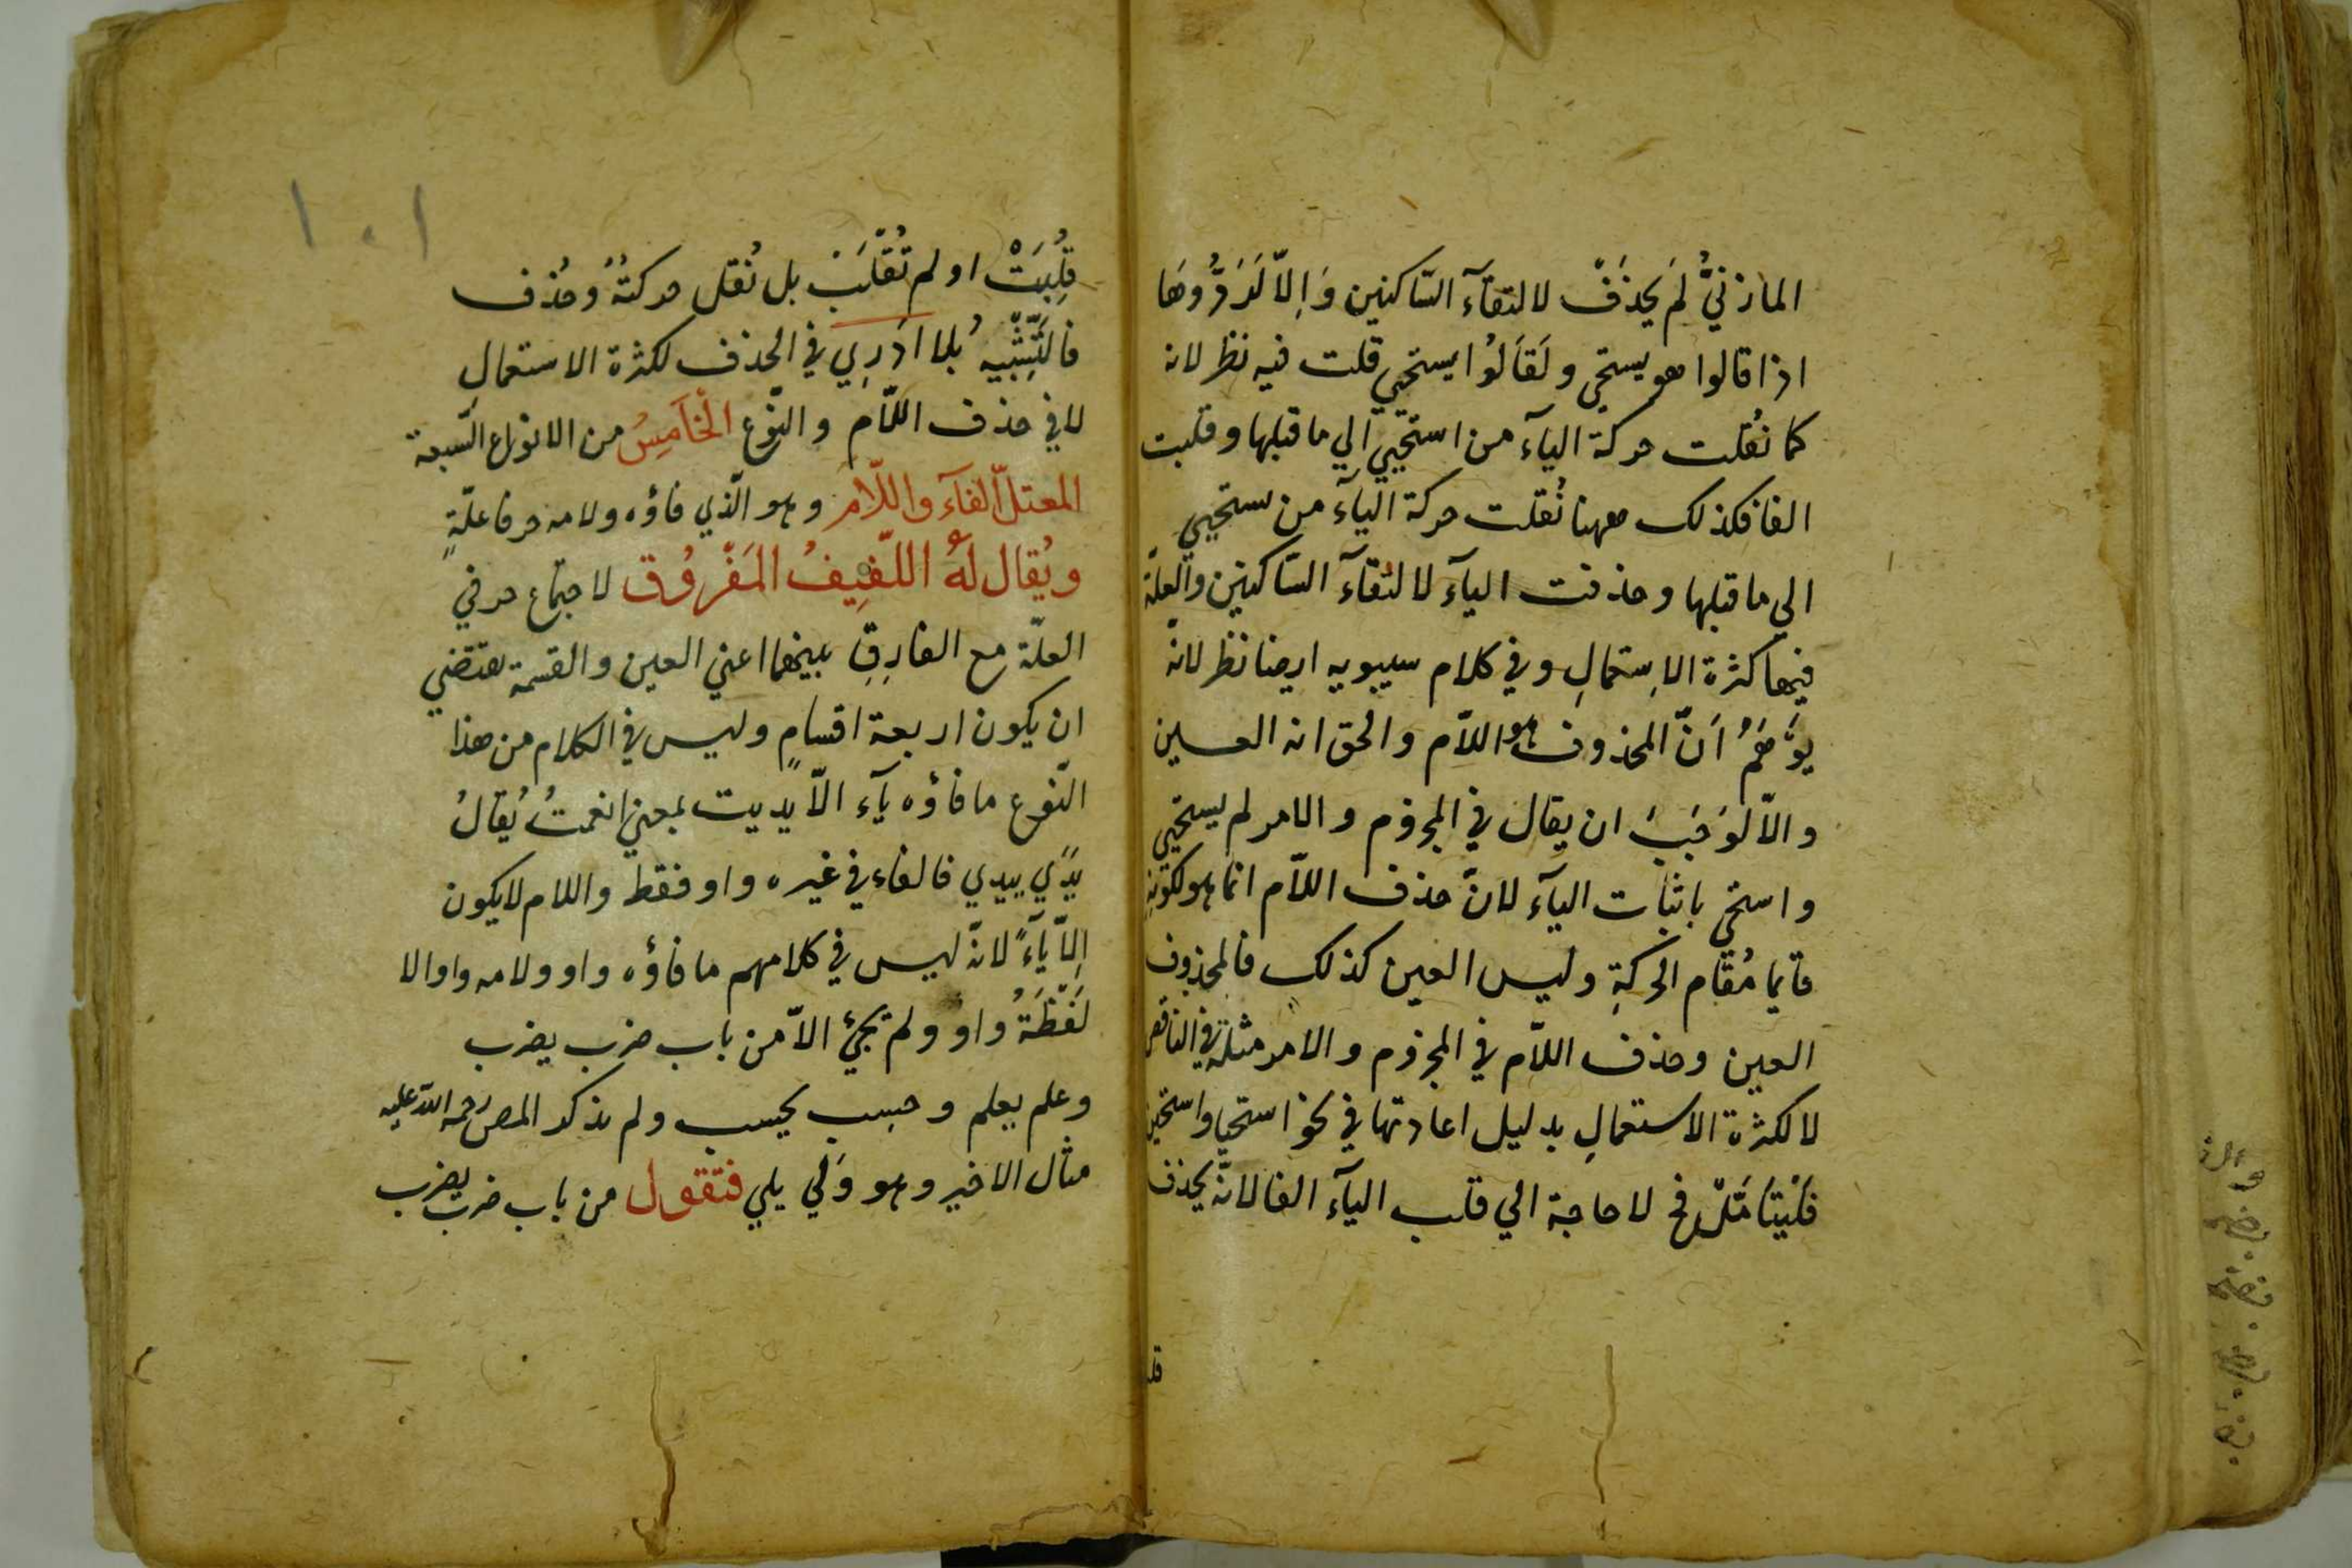 المازنيُّ لم يحذَفْ لالتقآء السّاكنين وَاِلاّ لَرَدُّوهَا
اذا قالوا هو يستحي ولَقَالُوا يستحيي قلت فيه نظر لانه
كما نُقلت حركة اليآء من استحيي الي ما قبلها وقلبت
الفا فكذلك ههنا نُقلت حركة اليآء من يستحيي
الي ما قبلها وحذفت اليآء لالتقآء السّاكنين والعلّة
فيهما كثرة الاِستعمالِ وفي كلام سيبويه ايضا نظر لانّه
يوَّهَمُ اَنَّ المحذوف هو اللاّم والحق انه العين
والاّ لَوَجَبَ ان يقال في المجزوم والامر لم يستحيي
واستحي باثبات اليآء لانّ حذف اللاّم انما هو لكونه
قايما مُقام الحركةِ وليس العين كذلك فالمحذوف
العين وحذف اللاّم في المجزوم والامر مثله في الناقص
لا لكثرة الاستعمالِ بدليل اعادتها في نحو استحيا واستحيين
فَلْيتأمَّلْ فح لا حاجة الي قلب اليآء الفا لانّه يحذف
قلبت
قُلِبَتْ او لم تُقْلَبْ بل نُقل حركتُهُ وحُذف
فالتَّشْبِيهُ بلا ادري في الحذف لكثرة الاستعمالِ
لا في حذف اللاّم والنّوع الْخَامِسُ من الانواع السّبعة
المعتلّ الفآء واللاّم وهو الّذي فاؤه ولامه حرفا علّةٍ
ويُقال لَهُ اللّفِيفُ المَفْرُوق لاجتماع حرفي
العلّة مع الفارِقِ بينهما اعني العين والقسمة تقتضي
ان يكون اربعة اقسامٍ وليس في الكلام من هذا
النّوع ما فاؤه يآء الاّ يديت بمعني انعمتُ يُقالُ
يدَي ييدي فالفاء في غيره واو فقط واللام لا يكون
اِلاّ يآءً لانّه ليس في كلامهم ما فاؤه واو ولامه واو الا
لَفْظَةُ واو ولم يجئ الاّ من باب ضرب يضرب
وعلم يعلم وحسِب يحسب ولم يذكر المص رحمة الله عليه
مثال الاخير وهو وَلِي يلي فتقول من باب ضرب يضرب
١٠١